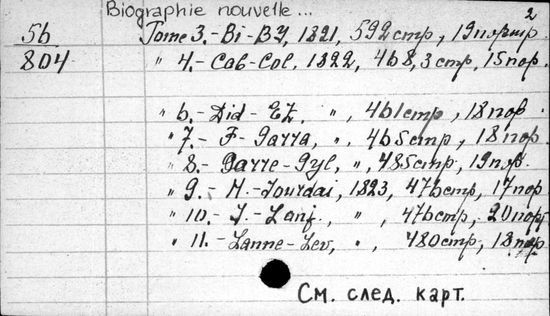 Biographie nouvelle... 2
5б Tome 3.-Bi-BZ, 1821, 592 стр, 19 портр
804 " 4.-Cab-Col, 1822, 468, 3 стр, 15 пор.
" 6.-Did-EZ, ", 461 стр, 18 пор
" 7.-F-Garra, ", 465 стр, 18 пор.
" 8.-Garre-Gyl, ", 485 стр, 19 пор.
" 9.-H.-Jourdai, 1823, 476 стр, 17 пор
" 10.-J.-Lanj., ", 476 стр, 20 порт
" 11.-Lanne-Lev, ", 480 стр, 18 пор.
См. след. карт.